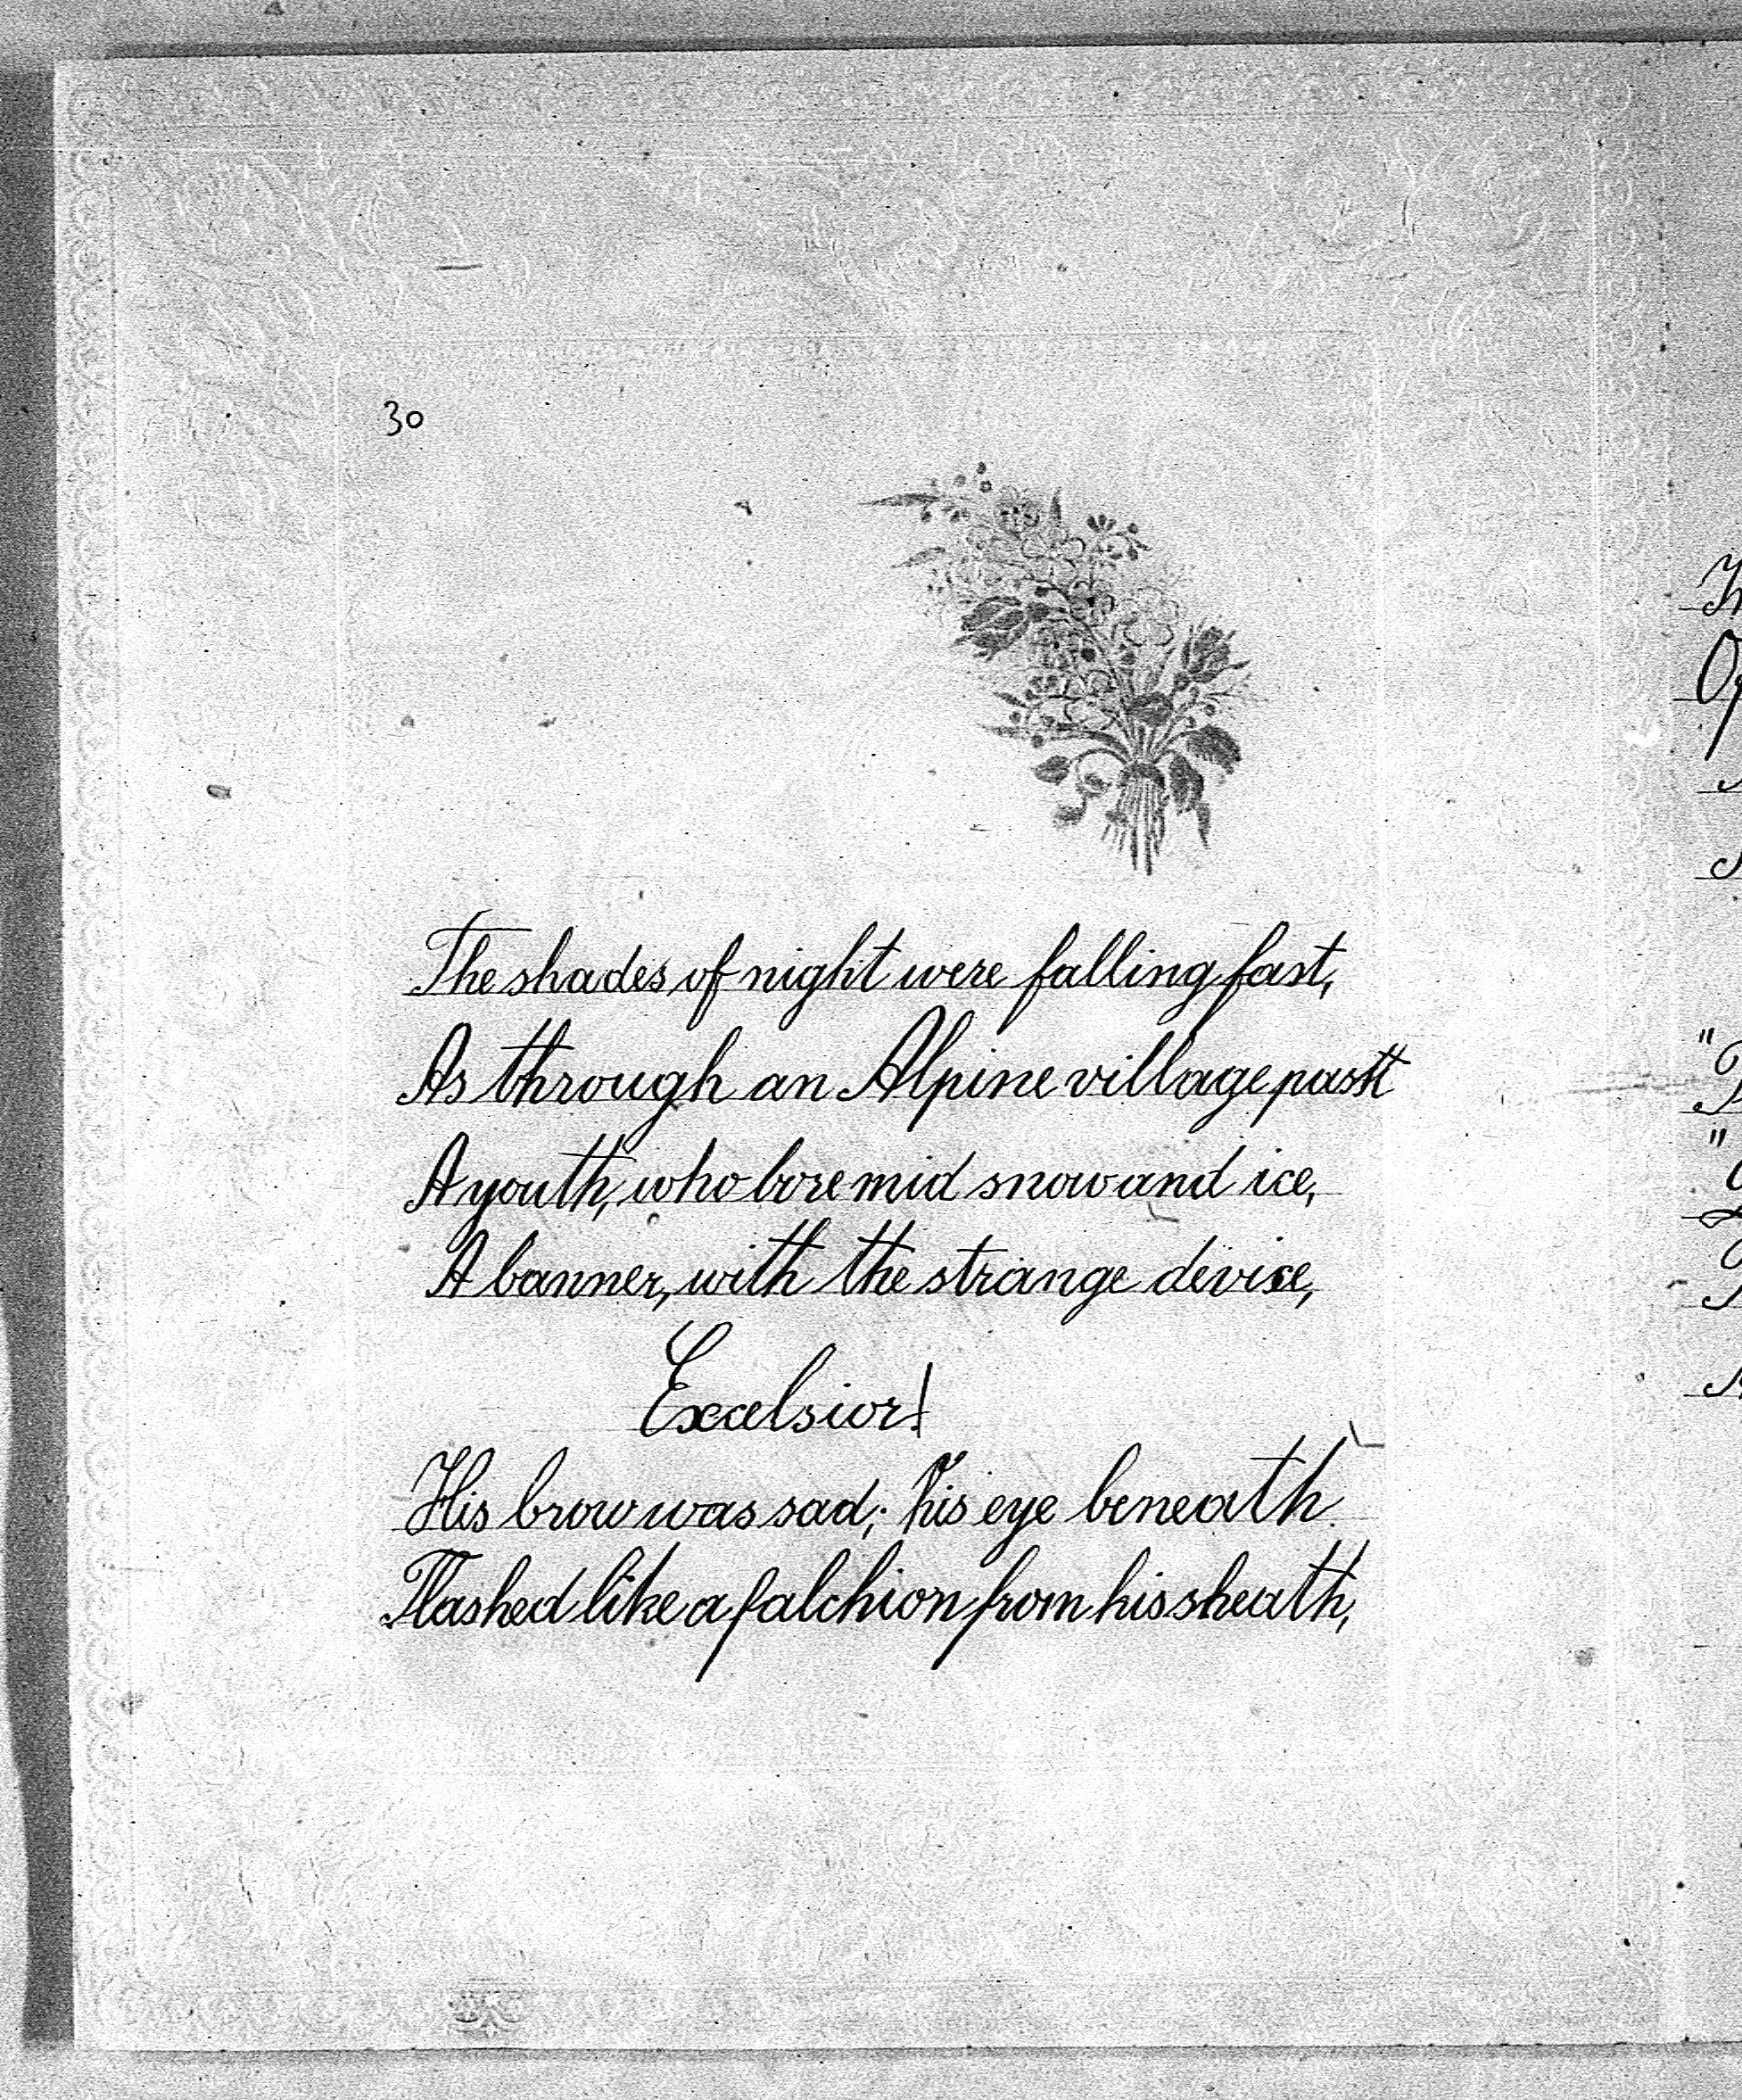 30
The shades of night were falling fast,
As through an Alpine village past
A youth, who bore mid snow and ice,
A banner, with the strange device,
Excelsior!
His brow was sad; his eye beneath
Flashed like a falchion from his sheath,